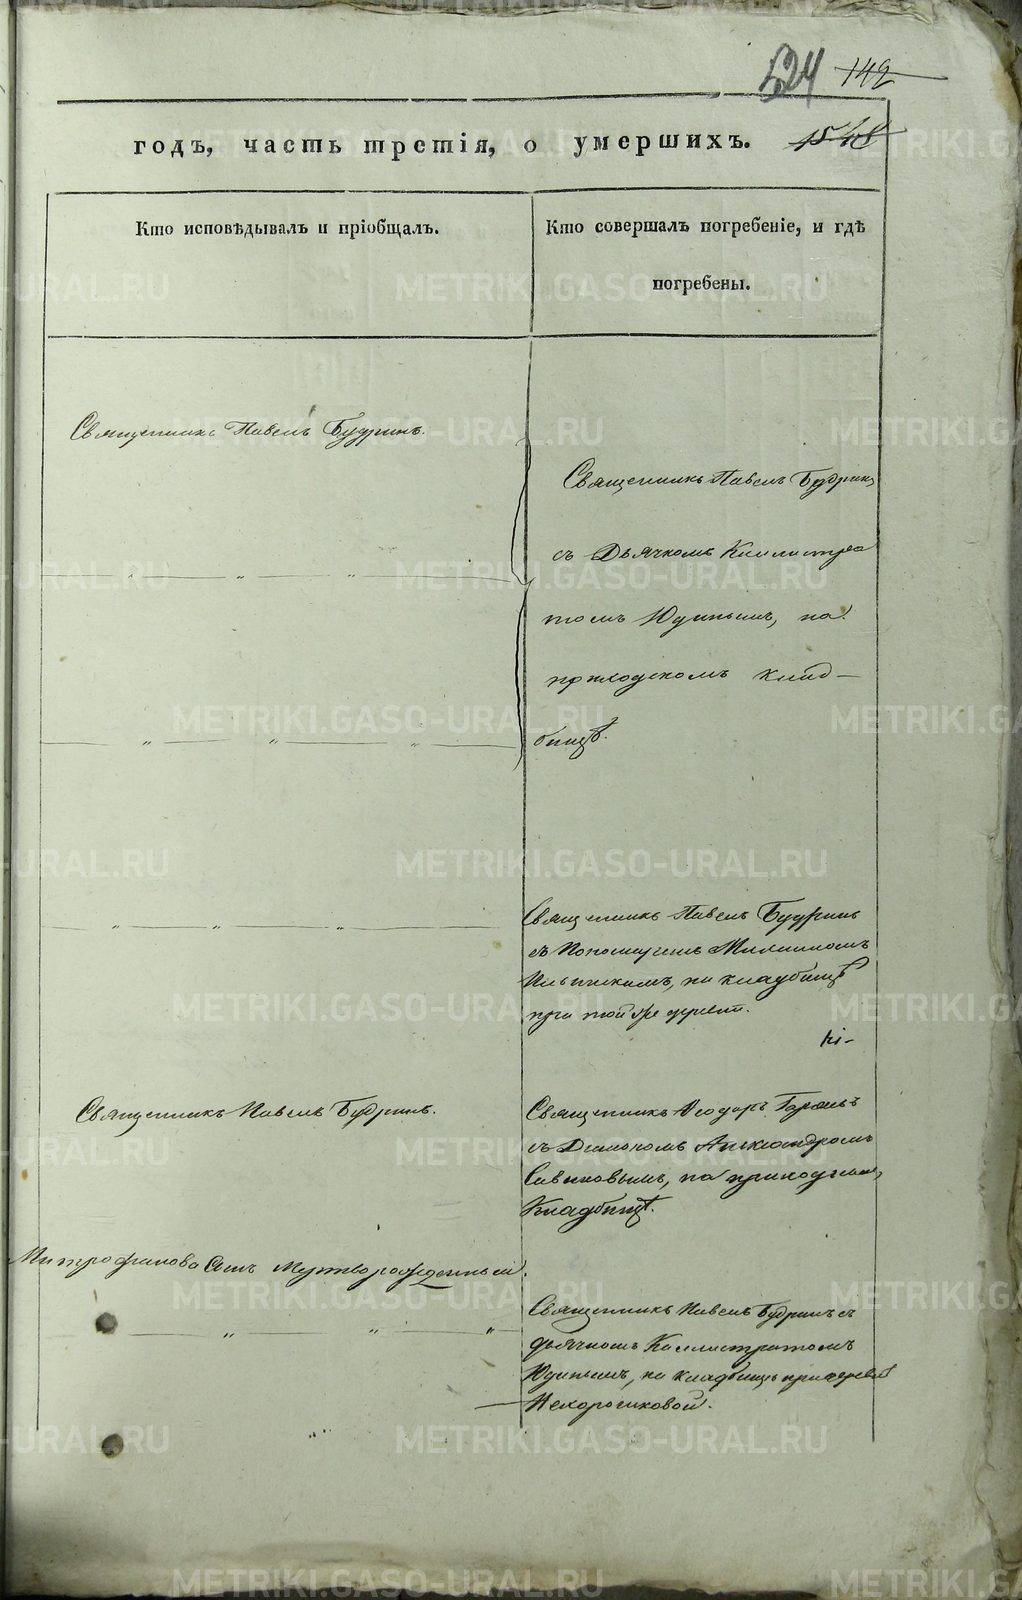 524 142
годъ, часть третія, о умершихъ. 1548
Кто исповѣдывалъ и пріобщалъ.
Кто совершалъ погребеніе, и гдѣ
погребены.
Священникъ Павелъ Будринъ.
Священникъ Павелъ Будринъ
съ Дьячкомъ Каллистра
томъ Юдинымъ, на
приходскомъ клад-
бищѣ.
Священникъ Павелъ Будринъ
съ Пономаремъ
на кладбищѣ
при той же деревнѣ.
Священникъ Павелъ Будринъ.
Священникъ Ѳеодоръ
съ Діакономъ Александромъ
на приходскомъ
Кладбищѣ.
Митрофанова Сынъ Мертворожденный.
Священникъ Павелъ Будринъ съ
дьячкомъ Каллистратомъ
Юдинымъ, на кладбищѣ при деревнѣ
Нехорошковой.
METRIKI.GASO-URAL.RU